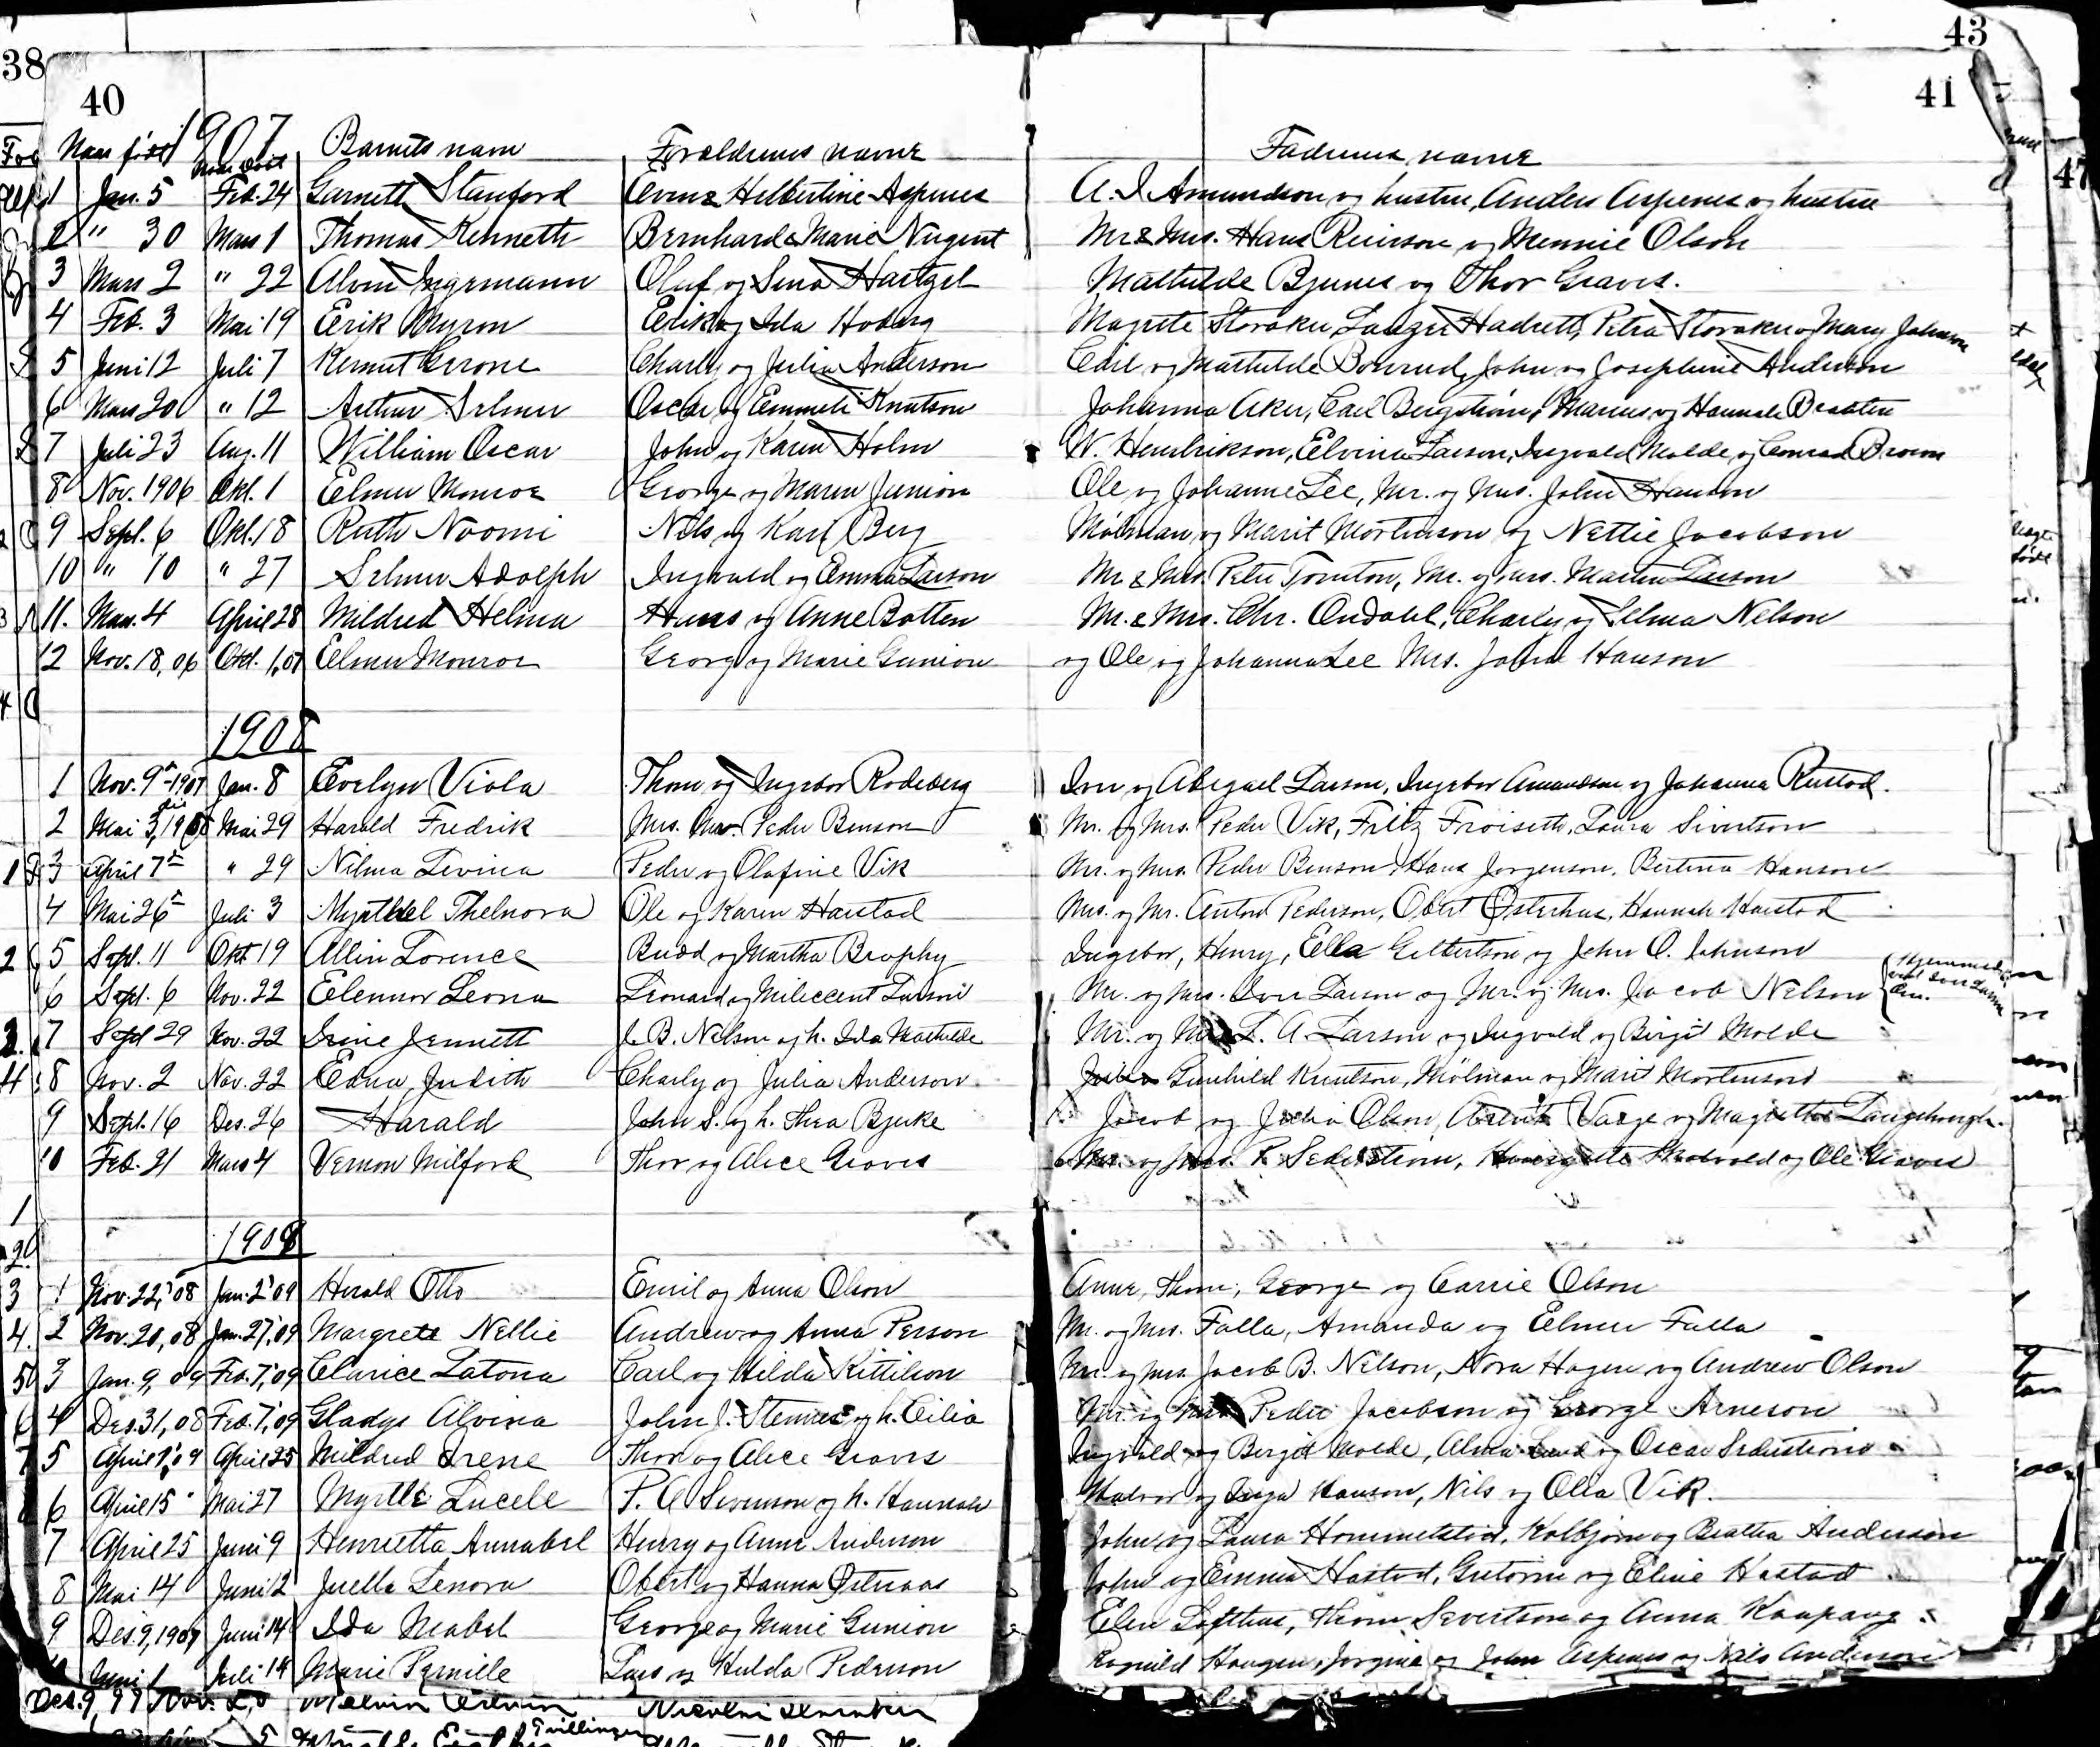 38
43
40
41
47
1907
Naar født Naar døbt Barnets navn Forældrenes navne Faderenes navne
1 Jan. 5 Feb. 24 Garnett Stanford Hilbertine Aspenes A. I. Amundson og hustru, Anders Aspenes og hustru
2 " 30 Mars 1 Thomas Kenneth Bernhard & Marie Nugent Mr & Mrs. Hans Reierson og Mennie Olson
3 Mars 2 " 22 Alvin Ingemann Oluf og Sena Hartzel Mathilde Bjenes og Thor Graves.
4 Feb. 3 Mai 19 Erik Myron Erik og Ida Hoberg Magrete Storaker, Hadrett, Petra Storaker og Mary Johnson
5 Juni 12 Juli 7 Kermit Charly og Julia Anderson Carl og Mathilde Bonrud, John og Josephine Anderson
6 Mars 20 " 12 Arthur Selmer Oscar og Emmeli Knutson Johanna Aker, Carl Bergstrøm, Marius og Hannah Braaten
7 Juli 23 Aug. 11 William Oscar John og Karen Holm W. Henrikson, Elvina Larson, Ingvald Molde, og Conrad Brown
8 Nov. 1906 Okt. 1 Elmer Monroe George og Maren Junion Ole og Johanne Lee, Mr. og Mrs. John Hanson
9 Sept. 6 Okt. 18 Ruth Noomi Nils og Kari Berg Mølman og Marit Mortenson og Nettie Jacobson
10 " 10 " 27 Selmer Adolph Ingvald og Emma Larson Mr & Mrs. Peter Tomton, Mr. og Mrs. Martin Larson
11. Mars. 4 April 28 Mildred Helma Hans og Anne Botten Mr. & Mrs. Chr. Ondahl, Charly og Selma Nelson
12 Nov. 18, 06 Okt. 1, 07 Elmer Monroe Georg og Marie Gunion og Ole og Johanna Lee Mrs. John Hanson
1908
1 Nov. 9 1907 Jan. 8 Evelyn Viola Thom og Ingebor Rodeberg Iver og Abigael Larson, Ingebor Amundson og Johanna Rustad.
2 Mai 3, 1908 Mai 29 Harald Fredrik Mrs. Mr. Peder Benson Mr. og Mrs. Peder Vik, Fritz Froiseth, Laura Sivertson
3 April 7 " 29 Nilma Levina Peder og Olafine Vik Mr. og Mrs. Peder Benson, Hans Jorgenson, Bertina Hanson
4 Mai 26 Juli 3 Thelnora Ole og Karen Harstad Mrs. og Mr. Anton Pederson, Obert Østerhus, Hannah Harstad
5 Sept. 11 Okt 19 Allin Lorence Budd og Martha Brophy Ingebor, Henry, Ella Gilbertson og John O. Johnson
6 Sept. 6 Nov. 22 Elennor Leona Leonard og Milicent Larson Mr. og Mrs. Iver Larson og Mr. og Mrs. Jacob Nelson
7 Sept 29 Nov. 22 Irine Jennett J. B. Nelson og h. Ida Mathilde Mr. og Mrs L. A. Larson og Ingvald og Birgit Molde
8 Nov. 2 Nov. 22 Edna Judith Charly og Julia Anderson Gunhild Knutson, Mølman og Marit Mortenson
9 Sept. 16 Des. 26 Harald John S. og h. Thea Bjerke Jacob og Julia Olson, Vaage og Magrethe
10 Feb. 21 Mars 4 Vernon Milford Thor og Alice Graves Mr. og Mrs. P. Sederstrøm, og Ole Graves
1909
1 Nov. 22, '08 Jan. 2 '09 Herald Otto Emil og Anna Olson Anne, Thom, George og Carrie Olson
2 Nov. 20, 08 Jan. 27, '09 Margrete Nellie Andrew og Anna Person Mr. og Mrs. Falla, Amanda og Elmer Falla
3 Jan. 9, 09 Feb. 7, '09 Clarice Latona Carl og Hilda Kittilson Mr. og Mrs. Jacob B. Nelson, Nora Hagen og Andrew Olson
4 Des. 31, 08 Feb. 7, '09 Gladys Alvina John J. og h. Cilia Mr. og Mrs Peder Jacobson og George Arneson
5 April 1, 09 April 25 Mildred Irene Thor og Alice Graves Ingvald og Bergit Molde, Alma og Oscar Sederstrøm
6 April 15 Mai 27 Myrtle Lucele P. A Swenson og h. Hannah Halvor og Inga Hanson, Nils og Olla Vik.
7 April 25 Juni 9 Henrietta Annabel Henry og Anne Anderson John og Laura Hommelstad, Kolbjørn og Beatha Anderson
8 Mai 14 Juni 12 Juella Lenora Obert og Hanna John og Emma Hastad, Gutorm og Eline Hastad
9 Des. 9, 1909 Juni 14 Ida Mabel George og Marie Gunion Elen Lofthus, Thom Severtson og Anna Kaupang
Juni 1 Juli 14 Marie Pernille Lars og Hulda Pederson Ragnild Haugen, Jorgine og John Aspenes og Nils Anderson
Des. 9, 99 Nov. Melvin
Tvillinger